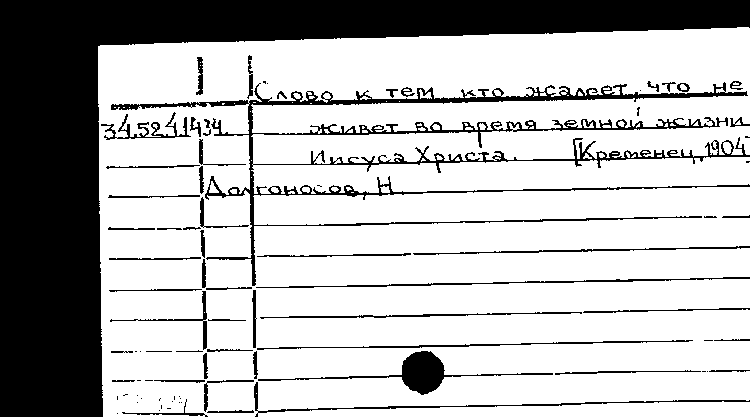 Слово к тем кто жалеет, что не
34.52.4.1434. живет во время земной жизни
Иисуса Христа. [Кременец, 1904]
Долгоносов, Н.